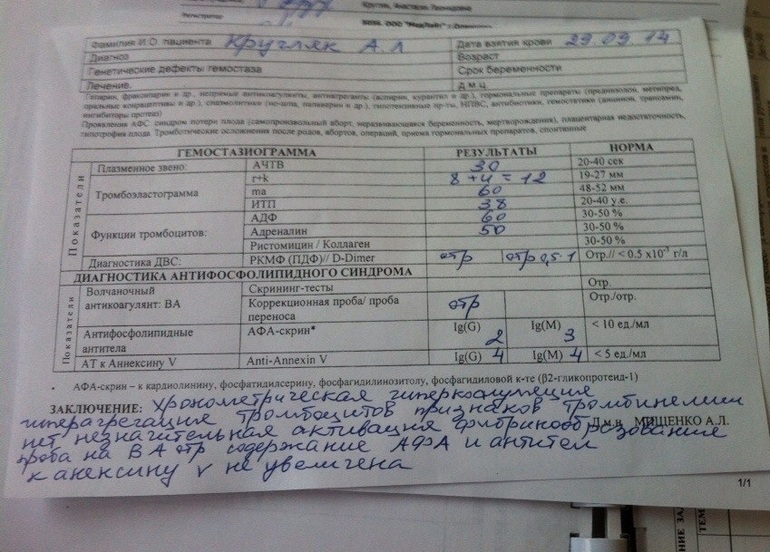 Кругляк, Анастасия Леонидовна
Регистратор
Фамилия И.О. пациента Кругляк А.Л Дата взятия крови 29.09.14
Диагноз Возраст
Генетические дефекты гемостаза Срок беременности
Лечение. Д.м.ц.
Гепарин, фраксипарин и др., непрямые антикоагулянты, антиагреганты (аспирин, курантил и др.), гормональные препараты (преднизолон, метипред,
оральные контрацептивы и др.), спазмолитики (но-шпа, папаверин и др.), гипотензивные пр-ты, НПВС, антибиотики, гемостатики (дицинон, транексам,
ингибиторы протеаз)
Проявления АФС: синдром потери плода (самопроизвольный аборт, неразвивающаяся беременность, мертворождения), плацентарная недостаточность,
гипотрофия плода. Тромботические осложнения после родов, абортов, операций, приема гормональных препаратов, спонтанные
ГЕМОСТАЗИОГРАММА РЕЗУЛЬТАТЫ НОРМА
Показатели
Плазменное звено: АЧТВ 30 20-40 сек
Тромбоэластограмма r+k 8+4=12 19-27 мм
ma 60 48-52 мм
ИТП 38 20-40 у.е.
Функции тромбоцитов: АДФ 60 30-50 %
Адреналин 50 30-50 %
Ристомицин / Коллаген 30-50 %
Диагностика ДВС: РКМФ (ПДФ)// D-Dimer отр отр 0,5-1 Отр.// < 0.5 х10⁻³ г/л
ДИАГНОСТИКА АНТИФОСФОЛИПИДНОГО СИНДРОМА
Показатели
Волчаночный антикоагулянт: ВА Скрининг-тесты Отр.
Коррекционная проба/ проба переноса отр Отр./отр.
Антифосфолипидные антитела АФА-скрин* Ig(G) 2 Ig(M) 3 < 10 ед./мл
АТ к Аннексину V Anti-Annexin V Ig(G) 4 Ig(M) 4 < 5 ед./мл
• АФА-скрин – к кардиолипину, фосфатидилсерину, фосфагидилинозитолу, фосфагидиловой к-те (β2-гликопротеид-1)
ЗАКЛЮЧЕНИЕ: хронометрическая гиперкоагуляция
гиперагрегация тромбоцитов признаков тромбинемии
нет незначительная активация фибринообразования
Д.м.н. МИЩЕНКО А.Л.
проба на ВА отр содержание АФА и антител
к анексину v не увеличена
1/1